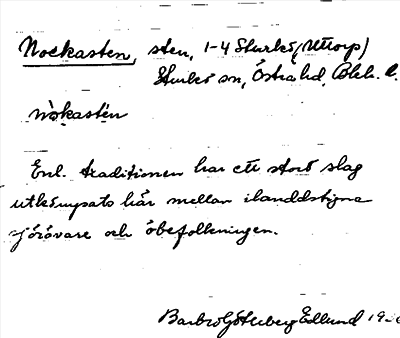 Nockasten, sten, 1-4 Sturkö, (Uttorp)
Sturkö sn, Östra hd, Blek. l.
nòkastén
Enl. traditionen har ett stort slag
utkämpats här mellan ilanddstigna
sjörövare och öbefolkningen.
Barbro Göteberg Edlund